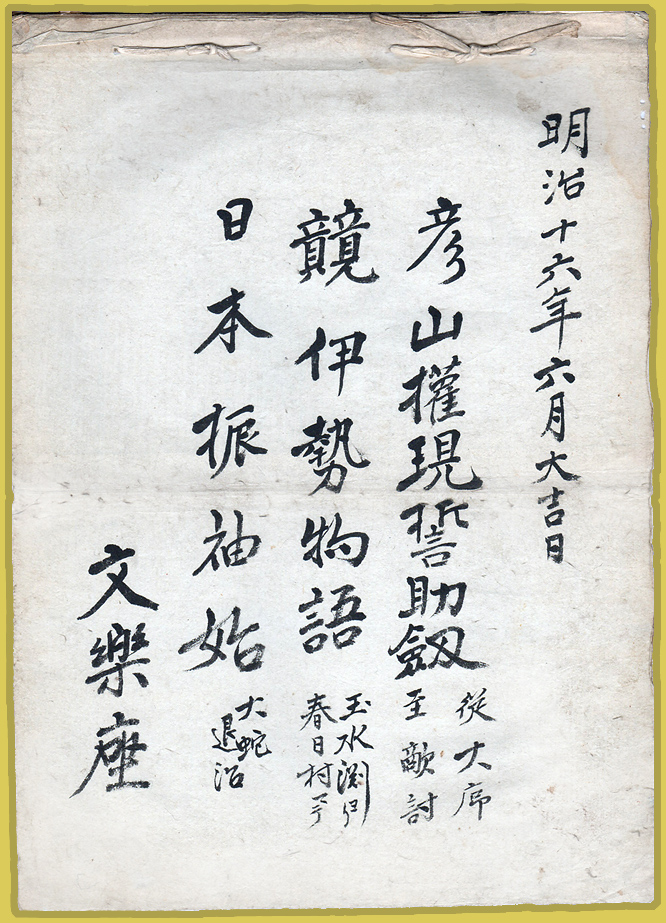 明治十六年六月大吉日
彦山權現誓助劔
從大序
至敵討
競伊勢物語
玉水渕
春日村
日本振袖始
大蛇
退治
文樂座